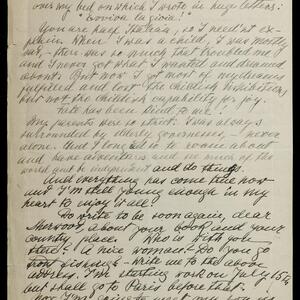 our my bed on which I wrote in huge letters:
"Evviva la gioia!"
You are half Italian, so I need'nt ex-
plain. When I was a child, I was mostly
sad, - there was so much that troubled me, and
and I never got what I wanted and dreamed
about. But now I got most of my dreams
fulfilled and lost the childish inhibitions,
but not the childish capability for joy.
Life has been kind to me!
My parents were so strict. I was always
surrounded by elderly governesses, - never
alone. And I longed so to roam about
and have adventures and see much of the
world and be independent and do things.
And everything has come true now -
and I'm still young enough in my
heart to enjoy it all!
Do write to me soon again, dear
Sherwood, about your book and your
country place. Who is with you
there? A nice woman? Do you go
trout fishing? - write me to the above
address. I'm starting work on July 15th
but shall go to Paris before that.
Now I'm going to meet my